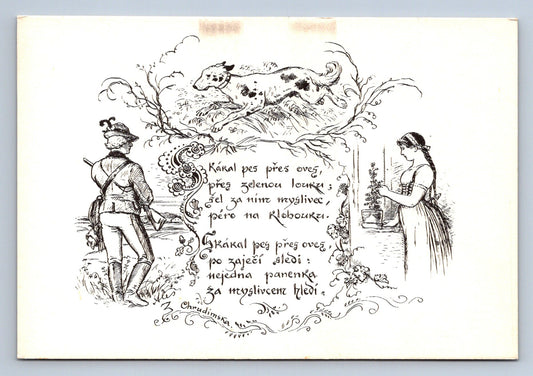 Skákal pes přes oves,
přes zelenou louku;
šel za ním myslivec,
péro na klobouku.
Skákal pes přes oves
po zaječí sledi:
nejedna panenka
za myslivcem hledí.
Chrudimská